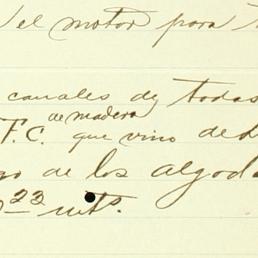 del motor para
canales de todas
de madera
F.C. que vino de
de los algod
23 mts.